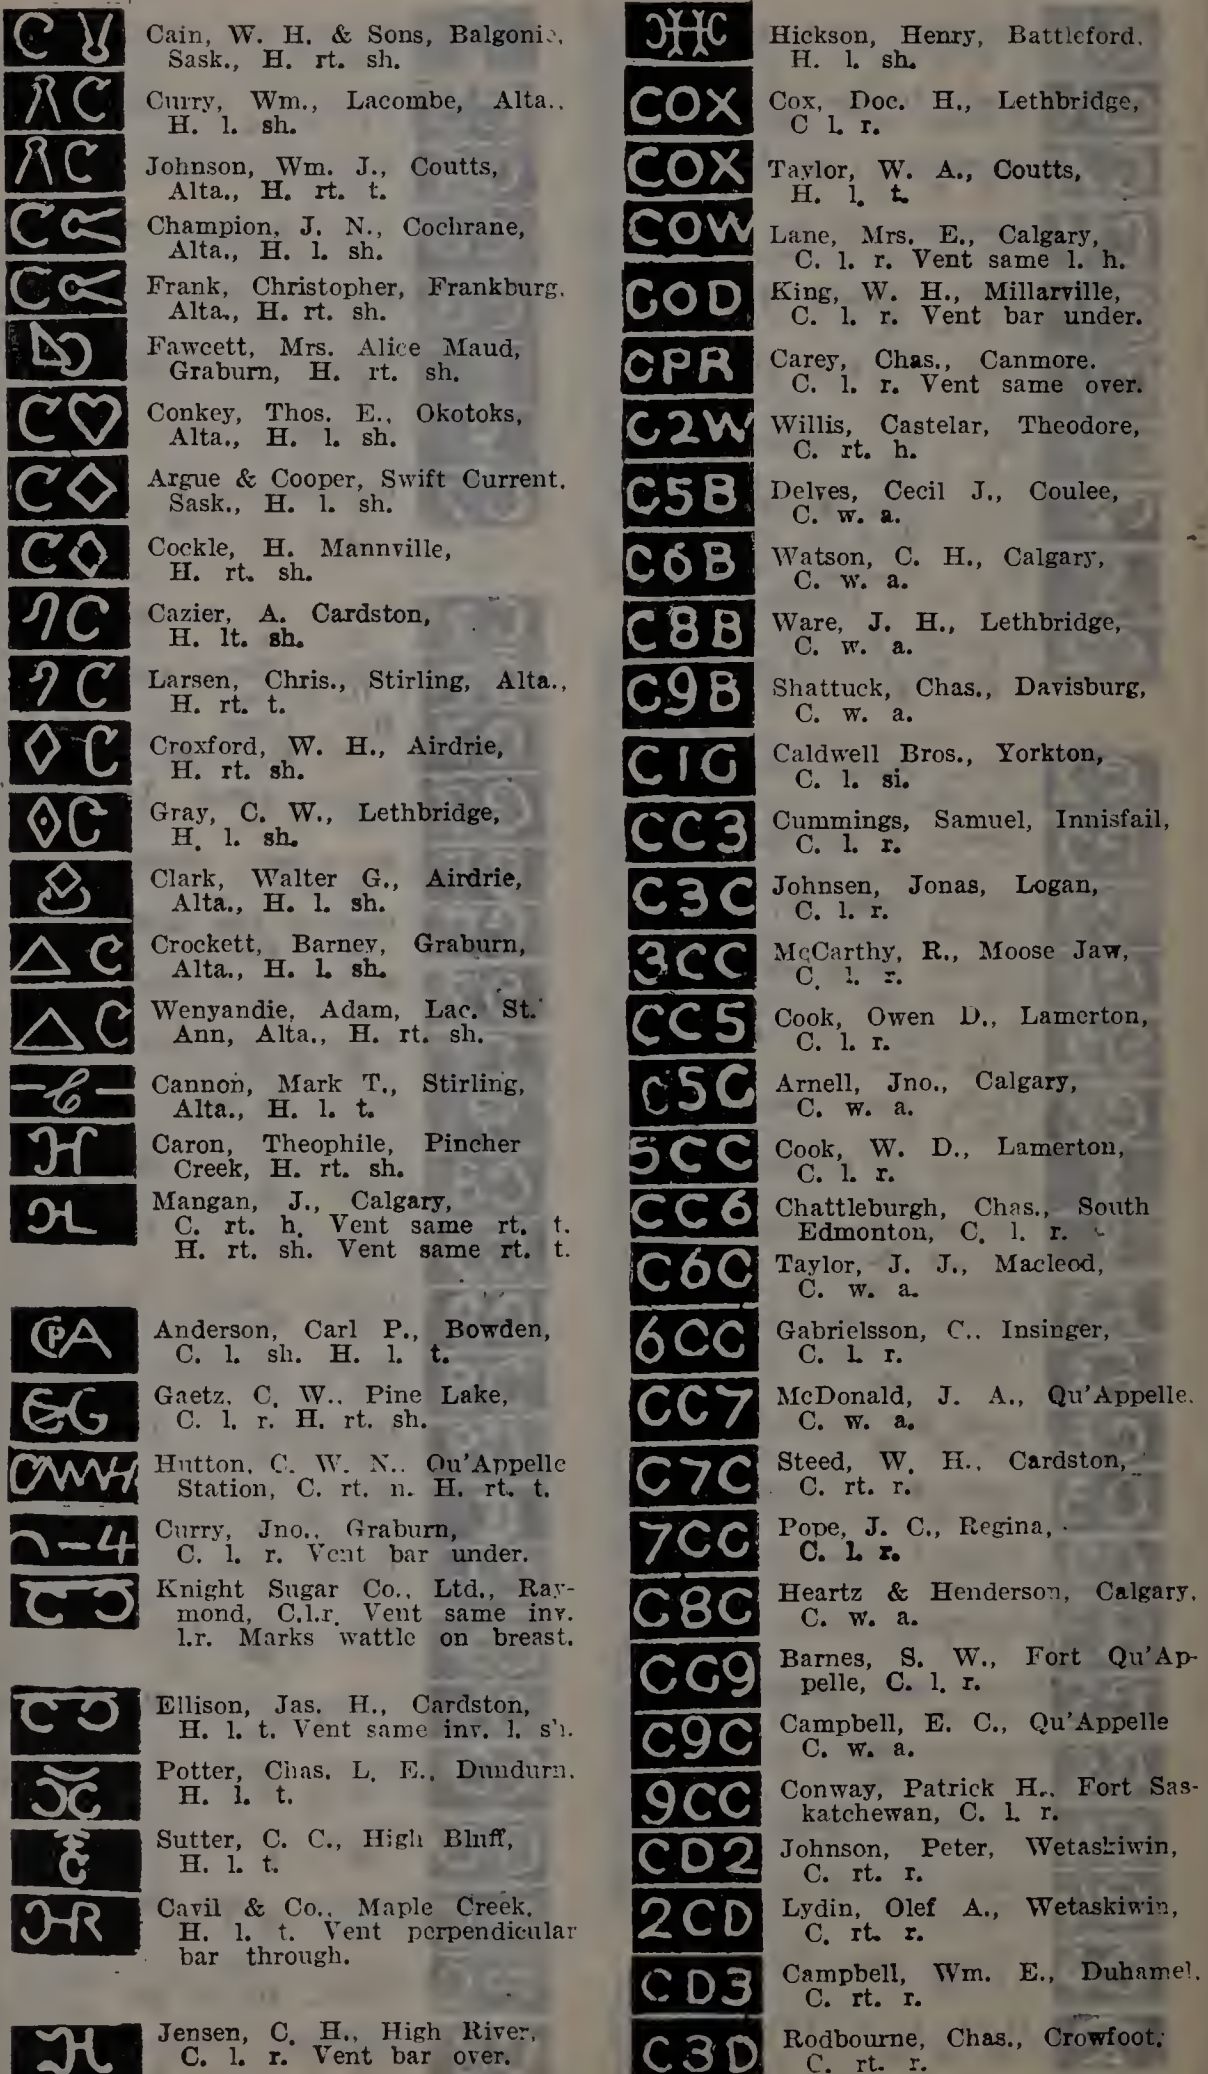 Cain, W. H. & Sons, Balgonie,
Sask., H. rt. sh.
Curry, Wm., Lacombe, Alta.,
H. l. sh.
Johnson, Wm. J., Coutts,
Alta., H. rt. t.
Champion, J. N., Cochrane,
Alta., H. l. sh.
Frank, Christopher, Frankburg,
Alta., H. rt. sh.
Fawcett, Mrs. Alice Maud,
Graburn, H. rt. sh.
Conkey, Thos. E., Okotoks,
Alta., H. l. sh.
Argue & Cooper, Swift Current.
Sask., H. l. sh.
Cockle, H. Mannville,
H. rt. sh.
Cazier, A. Cardston,
H. lt. sh.
Larsen, Chris., Stirling, Alta.,
H. rt. t.
Croxford, W. H., Airdrie,
H. rt. sh.
Gray, C. W., Lethbridge,
H. l. sh.
Clark, Walter G., Airdrie,
Alta., H. l. sh.
Crockett, Barney, Graburn,
Alta., H. l. sh.
Wenyandie, Adam, Lac. St.
Ann, Alta., H. rt. sh.
Cannon, Mark T., Stirling,
Alta., H. l. t.
Caron, Theophile, Pincher
Creek, H. rt. sh.
Mangan, J., Calgary,
C. rt. h. Vent same rt. t.
H. rt. sh. Vent same rt. t.
CPA Anderson, Carl P., Bowden,
C. l. sh. H. l. t.
Gaetz, C. W., Pine Lake,
C. l. r. H. rt. sh.
Hutton, C. W. N., Qu'Appelle
Station, C. rt. n. H. rt. t.
Curry, Jno., Graburn,
C. l. r. Vent bar under.
Knight Sugar Co., Ltd., Ray-
mond, C.l.r. Vent same inv.
l.r. Marks wattle on breast.
Ellison, Jas. H., Cardston,
H. l. t. Vent same inv. l. sh.
Potter, Chas. L. E., Dundurn.
H. l. t.
Sutter, C. C., High Bluff,
H. l. t.
Cavil & Co., Maple Creek,
H. l. t. Vent perpendicular
bar through.
Jensen, C. H., High River,
C. l. r. Vent bar over.
Hickson, Henry, Battleford.
H. l. sh.
COX Cox, Doc. H., Lethbridge,
C l. r.
COX Taylor, W. A., Coutts,
H. l. t.
COW Lane, Mrs. E., Calgary,
C. l. r. Vent same l. h.
COD King, W. H., Millarville,
C. l. r. Vent bar under.
CPR Carey, Chas., Canmore.
C. l. r. Vent same over.
C2W Willis, Castelar, Theodore,
C. rt. h.
C5B Delves, Cecil J., Coulee,
C. w. a.
C6B Watson, C. H., Calgary,
C. w. a.
C8B Ware, J. H., Lethbridge,
C. w. a.
C9B Shattuck, Chas., Davisburg,
C. w. a.
C1G Caldwell Bros., Yorkton,
C. l. si.
CC3 Cummings, Samuel, Innisfail,
C. l. r.
C3C Johnsen, Jonas, Logan,
C. l. r.
3CC McCarthy, R., Moose Jaw,
C. l. r.
CC5 Cook, Owen D., Lamerton,
C. l. r.
C5C Arnell, Jno., Calgary,
C. w. a.
5CC Cook, W. D., Lamerton,
C. l. r.
CC6 Chattleburgh, Chas., South
Edmonton, C. l. r.
C6C Taylor, J. J., Macleod,
C. w. a.
6CC Gabrielsson, C., Insinger,
C. l. r.
CC7 McDonald, J. A., Qu'Appelle.
C. w. a.
C7C Steed, W. H., Cardston,
C. rt. r.
7CC Pope, J. C., Regina,
C. l. r.
C8C Heartz & Henderson, Calgary.
C. w. a.
CC9 Barnes, S. W., Fort Qu'Ap-
pelle, C. l. r.
C9C Campbell, E. C., Qu'Appelle
C. w. a.
9CC Conway, Patrick H., Fort Sas-
katchewan, C. l. r.
CD2 Johnson, Peter, Wetaskiwin,
C. rt. r.
2CD Lydin, Olef A., Wetaskiwin,
C. rt. r.
CD3 Campbell, Wm. E., Duhamel.
C. rt. r.
C3D Rodbourne, Chas., Crowfoot,
C. rt. r.